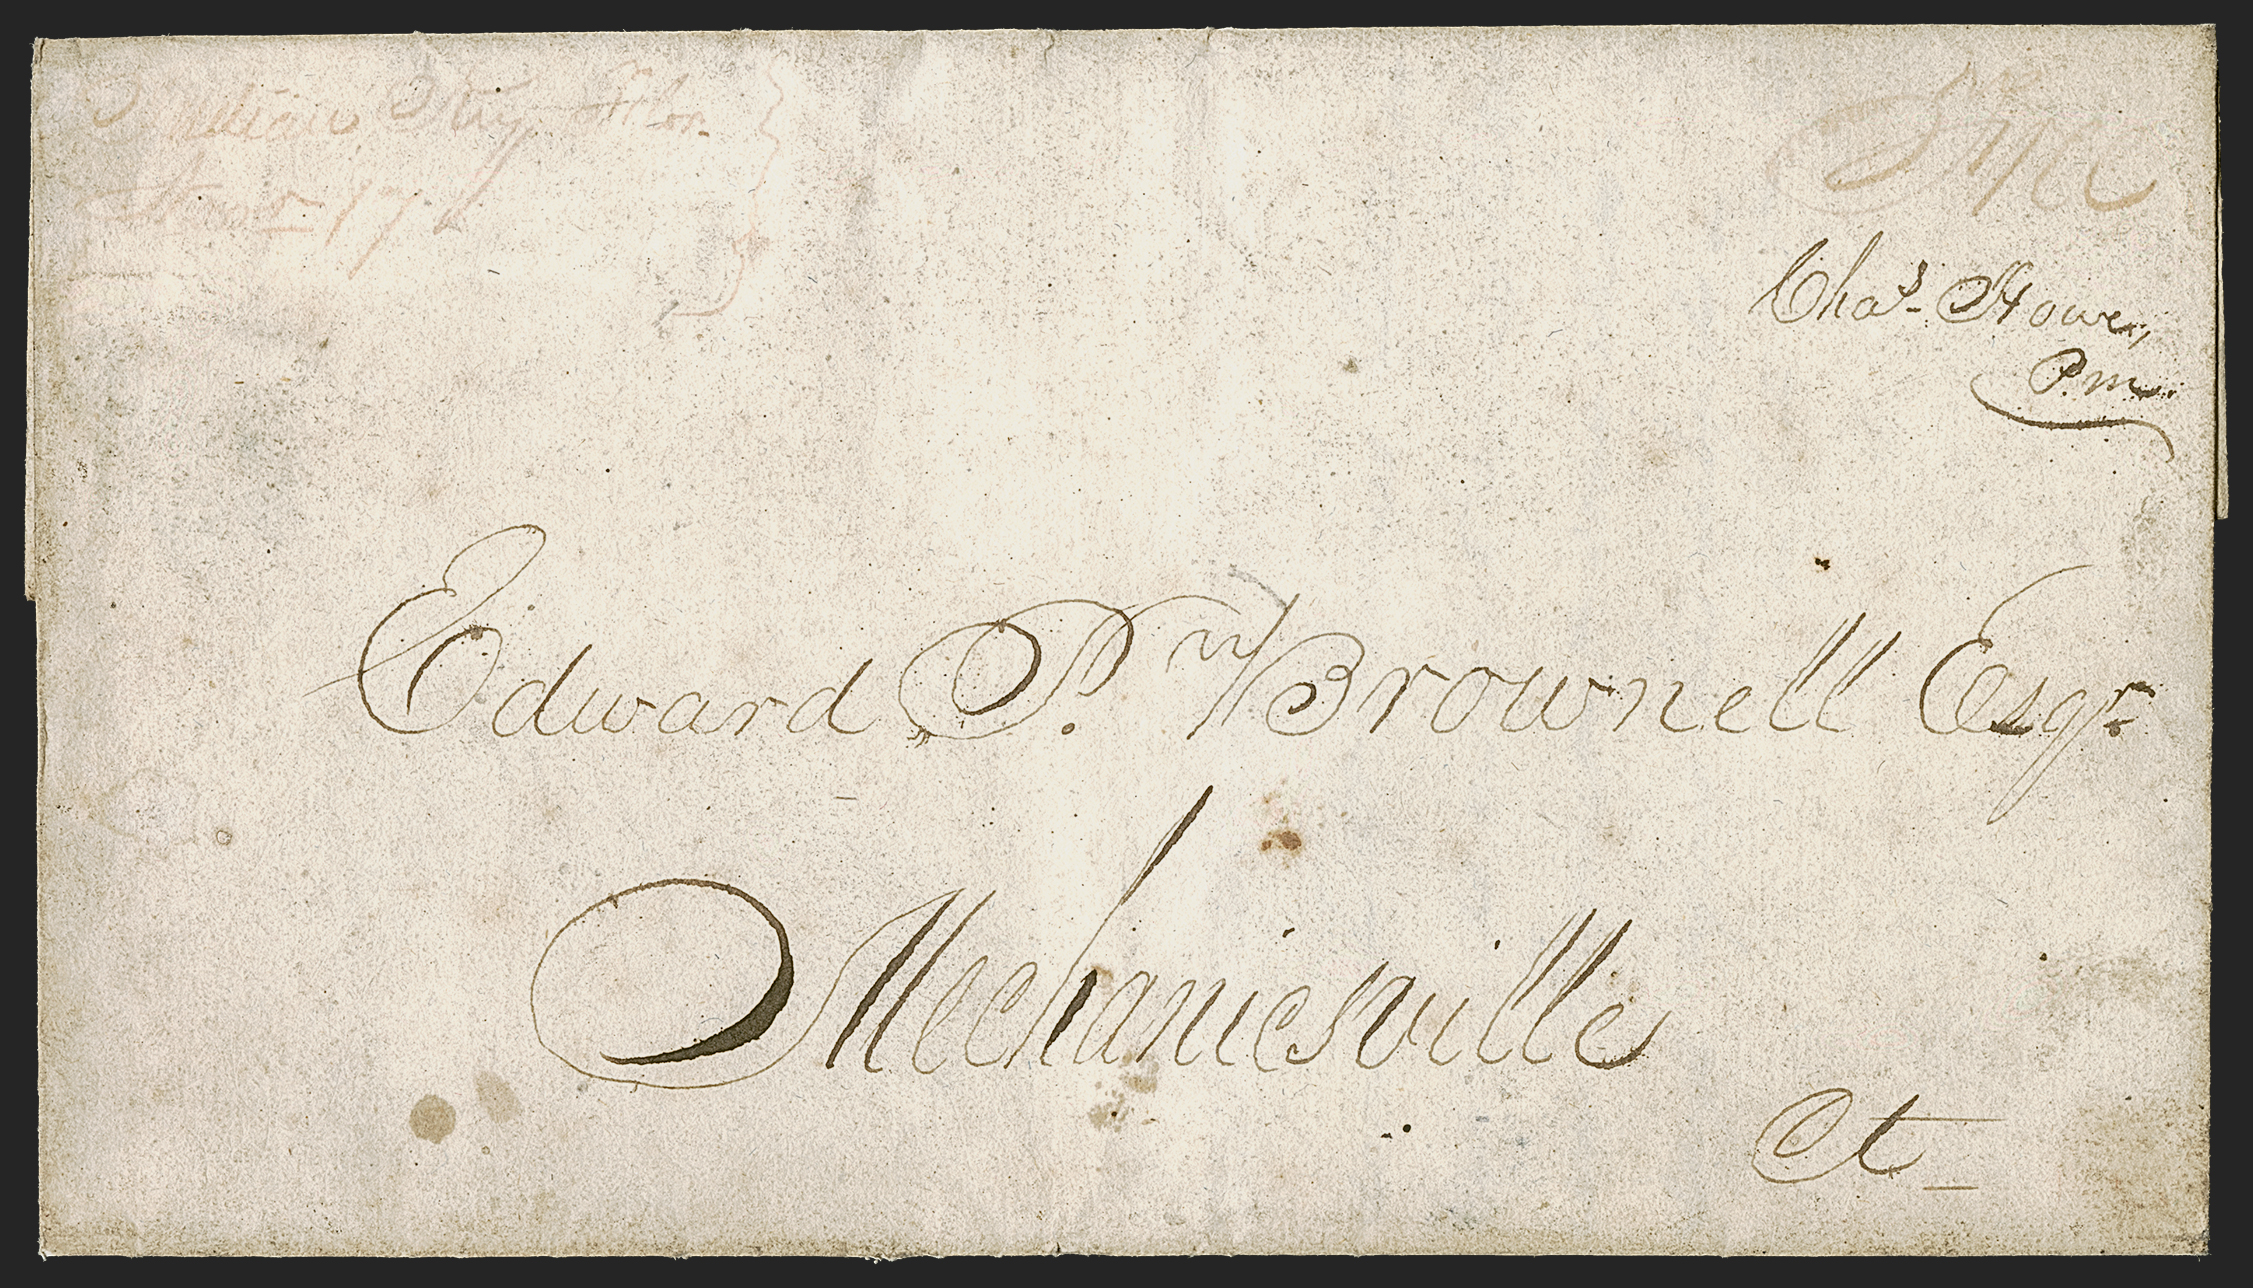 Indian Key Flor.
17
Free
Chas. Howe,
P.m.
Edward P. Brownell Esqr.
Mechanicsville
Ct